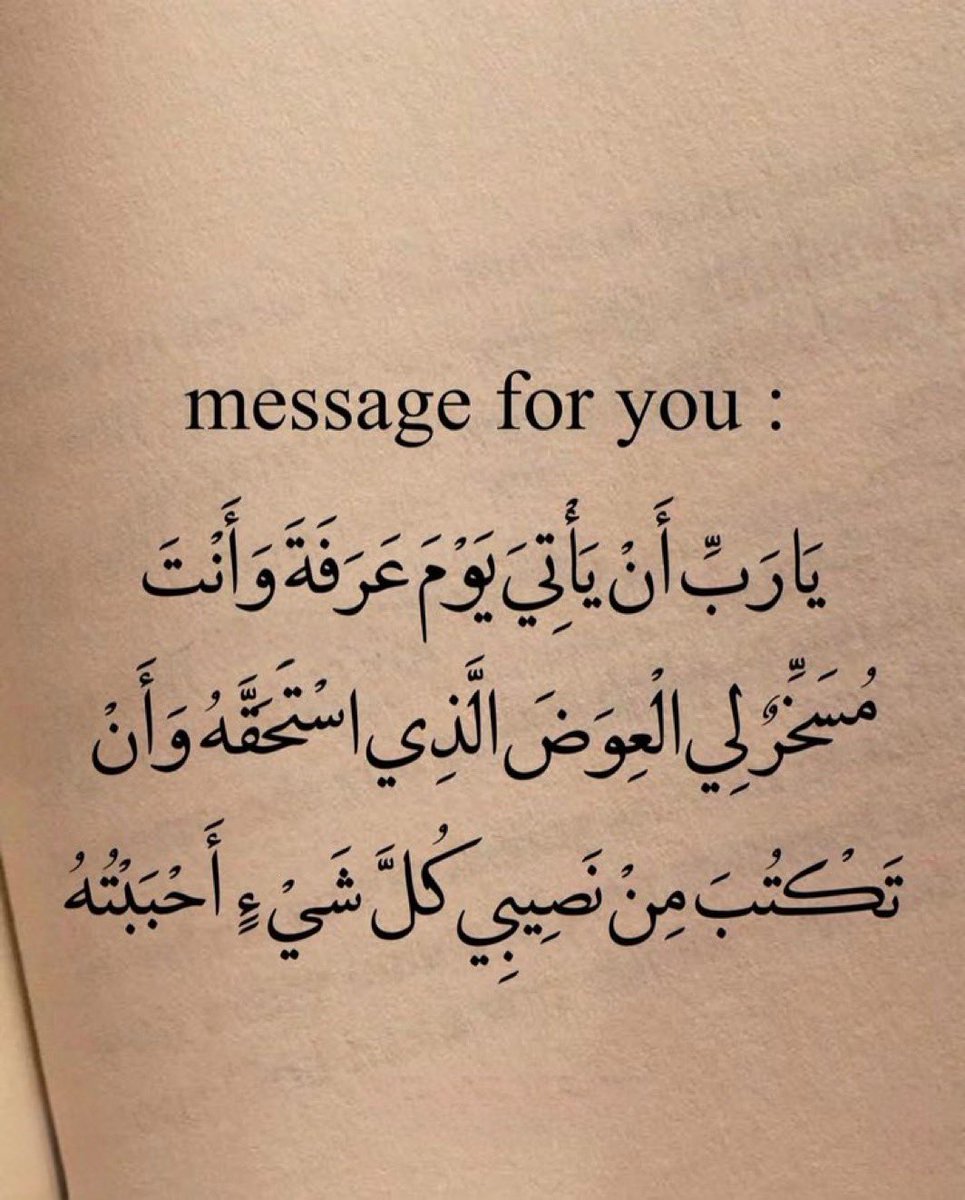 message for you :
يَارَبِّ أَنْ يَأْتِيَ يَوْمَ عَرَفَةَ وَأَنْتَ
مُسَخِّرٌ لِي الْعِوَضَ الَّذِي اسْتَحَقَّهُ وَأَنْ
تَكْتُبَ مِنْ نَصِيبِي كُلَّ شَيْءٍ أَحْبَبْتُهُ